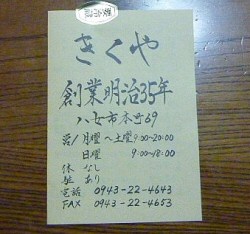 きくや
創業明治35年
八女市本町69
営/月曜~土曜9:00~20:00
日曜 9:00~18:00
休 なし
駐 あり
電話 0943-22-4643
FAX 0943-22-4653